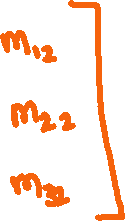 m12
m22
m32
]